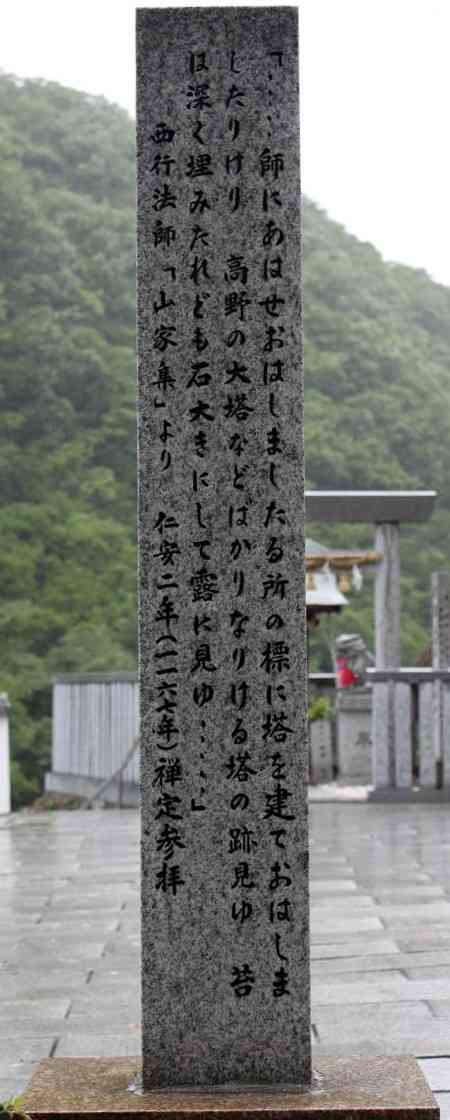 「‥‥師にあはせおはしましたる所の標に塔を建ておはしま
したりけり　高野の大塔などばかりなりける塔の跡見ゆ　苔
は深く埋みたれども石大きにして露に見ゆ‥‥‥」
西行法師「山家集」より　仁安二年(一一六七年)禅定参拝